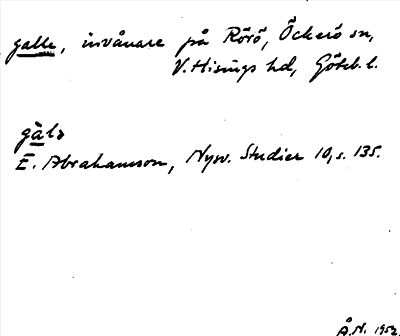 galle, invånare på Rörö, Öckerö sn,
V. Hisings hd, Göteb. l.
gàlə
E. Abrahamson, Nysv. Studier 10, s. 135.
Å.N. 1952